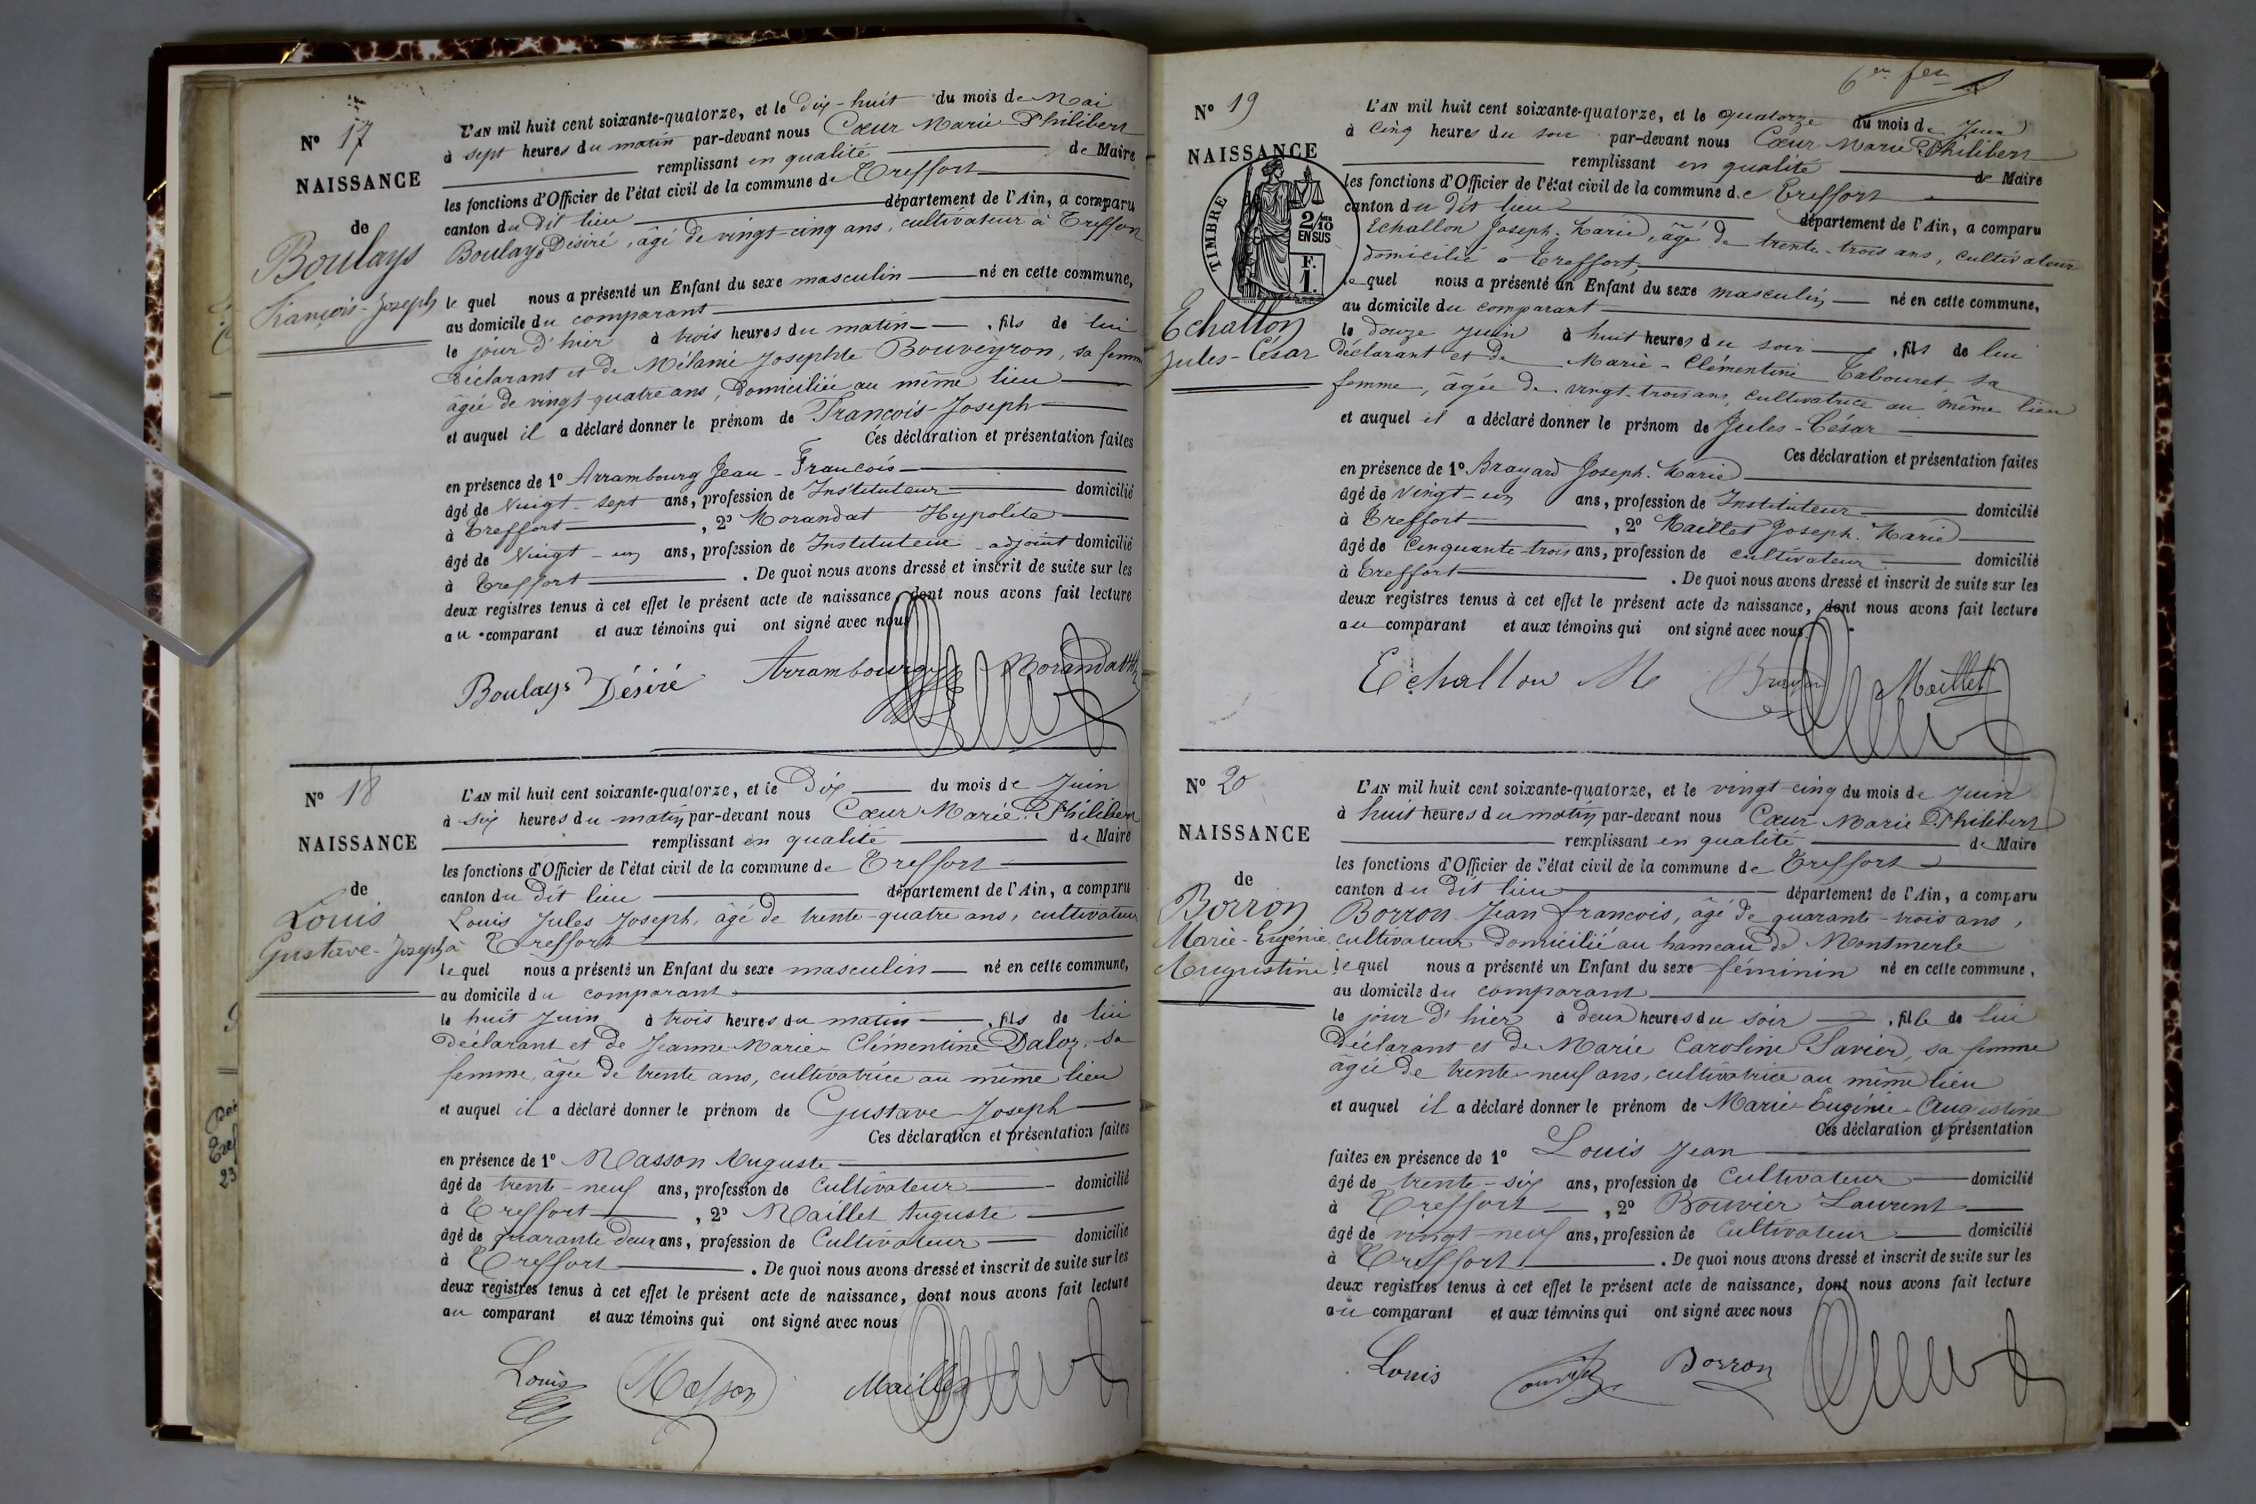 N° 17
NAISSANCE
de
Boulays
François-Joseph
L'AN mil huit cent soixante-quatorze, et le Dix-huit du mois de Mai
à sept heures du matin par-devant nous Cœur Marie Philibert
remplissant en qualité de Maire
les fonctions d'Officier de l'état civil de la commune de Treffort
canton du dit lieu département de l'Ain, a comparu
Boulays Désiré, âgé de vingt-cinq ans, cultivateur à Treffort
lequel nous a présenté un Enfant du sexe masculin né en cette commune,
au domicile du comparant
le jour d'hier à trois heures du matin, fils de lui
déclarant et de Mélanie Josephte Bouveyron, sa femme
âgée de vingt-quatre ans, domiciliée au même lieu
et auquel il a déclaré donner le prénom de François-Joseph
Ces déclaration et présentation faites
en présence de 1° Arrambourg Jean-François
âgé de Vingt-sept ans, profession de Instituteur domicilié
à Treffort, 2° Morandat Hypolite
âgé de Vingt-un ans, profession de Instituteur-adjoint domicilié
à Treffort. De quoi nous avons dressé et inscrit de suite sur les
deux registres tenus à cet effet le présent acte de naissance, dont nous avons fait lecture
au comparant et aux témoins qui ont signé avec nous
Boulays Désiré Arrambourg Morandat
N° 18
NAISSANCE
de
Louis
Gustave-Joseph
L'AN mil huit cent soixante-quatorze, et le Dix du mois de Juin
à six heures du matin par-devant nous Cœur Marie Philibert
remplissant en qualité de Maire
les fonctions d'Officier de l'état civil de la commune de Treffort
canton du dit lieu département de l'Ain, a comparu
Louis Jules Joseph, âgé de trente-quatre ans, cultivateur
à Treffort
lequel nous a présenté un Enfant du sexe masculin né en cette commune,
au domicile du comparant
le huit Juin à trois heures du matin, fils de lui
déclarant et de Jeanne-Marie-Clémentine Daloz, sa
femme, âgée de trente ans, cultivatrice au même lieu
et auquel il a déclaré donner le prénom de Gustave-Joseph
Ces déclaration et présentation faites
en présence de 1° Masson Auguste
âgé de trente-neuf ans, profession de Cultivateur domicilié
à Treffort, 2° Maillet Auguste
âgé de quarante deux ans, profession de Cultivateur domicilié
à Treffort. De quoi nous avons dressé et inscrit de suite sur les
deux registres tenus à cet effet le présent acte de naissance, dont nous avons fait lecture
au comparant et aux témoins qui ont signé avec nous
Louis Masson Maillet
N° 19
NAISSANCE
TIMBRE
2/10
EN SUS
F.
1.
Echallon
Jules-César
L'AN mil huit cent soixante-quatorze, et le quatorze du mois de Juin
à cinq heures du soir par-devant nous Cœur Marie Philibert
remplissant en qualité de Maire
les fonctions d'Officier de l'état civil de la commune de Treffort
canton du dit lieu département de l'Ain, a comparu
Echallon Joseph-Marie, âgé de trente-trois ans, cultivateur
domicilié à Treffort,
lequel nous a présenté un Enfant du sexe masculin né en cette commune,
au domicile du comparant
le douze Juin à huit heures du soir, fils de lui
déclarant et de Marie-Clémentine Tabouret sa
femme, âgée de vingt-trois ans, cultivatrice au même lieu
et auquel il a déclaré donner le prénom de Jules-César
Ces déclaration et présentation faites
en présence de 1° Brayard Joseph-Marie
âgé de Vingt-un ans, profession de Instituteur domicilié
à Treffort, 2° Maillet Joseph-Marie
âgé de Cinquante-trois ans, profession de cultivateur domicilié
à Treffort. De quoi nous avons dressé et inscrit de suite sur les
deux registres tenus à cet effet le présent acte de naissance, dont nous avons fait lecture
au comparant et aux témoins qui ont signé avec nous.
Echallon M Maillet
N° 20
NAISSANCE
de
Borron
Marie-Eugénie
Augustine
L'AN mil huit cent soixante-quatorze, et le vingt-cinq du mois de Juin
à huit heures du matin par-devant nous Cœur Marie Philibert
remplissant en qualité de Maire
les fonctions d'Officier de l'état civil de la commune de Treffort
canton du dit lieu département de l'Ain, a comparu
Borron Jean François, âgé de quarante-trois ans,
cultivateur domicilié au hameau de Montmerle
lequel nous a présenté un Enfant du sexe féminin né en cette commune,
au domicile du comparant
le jour d'hier à deux heures du soir, fille de lui
déclarant et de Marie Caroline Savier, sa femme
âgée de trente-neuf ans, cultivatrice au même lieu
et auquel il a déclaré donner le prénom de Marie-Eugénie-Augustine
Ces déclaration et présentation
faites en présence de 1° Louis Jean
âgé de trente-six ans, profession de Cultivateur domicilié
à Treffort, 2° Bouvier Laurent
âgé de vingt-neuf ans, profession de Cultivateur domicilié
à Treffort. De quoi nous avons dressé et inscrit de suite sur les
deux registres tenus à cet effet le présent acte de naissance, dont nous avons fait lecture
au comparant et aux témoins qui ont signé avec nous
Louis Borron